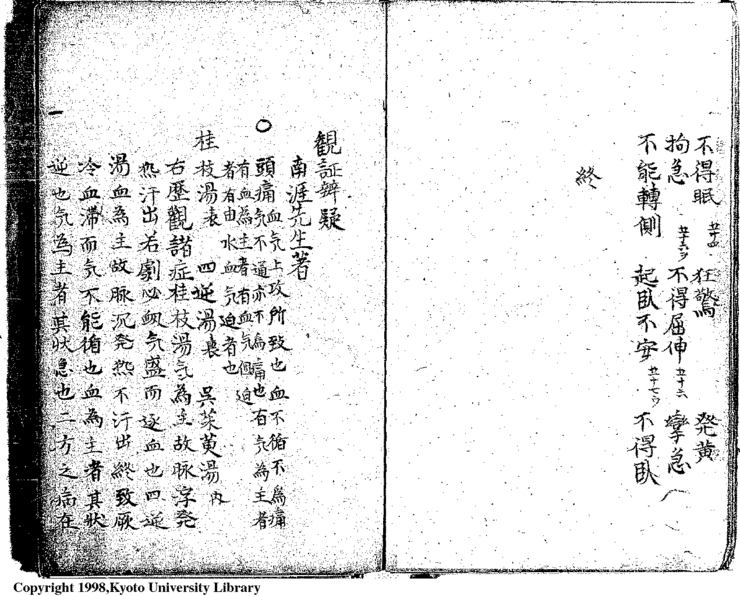 不得眠 五十四 狂驚 発黄
拘急 五十五ウ 不得屈伸 五十六 攣急
不能轉側 起臥不安 五十七ウ 不得臥
終
觀証辨疑
南涯先生著
○頭痛 血気上攻所致也血不循不為痛
気不通亦不為痛也有気為主者
有血為主者有血気個迫
者有由水血気迫者也
桂枝湯表 四逆湯裏 呉茱萸湯内
右歴觀諸症桂枝湯気為主故脉浮発
熱汗出若劇必衂気盛而逐血也四逆
湯血為主故脉沉発熱不汗出終致厥
冷血滞而気不能循也血為主者其状
逆也気為主者其状急也二方之病在
Copyright 1998,Kyoto University Library